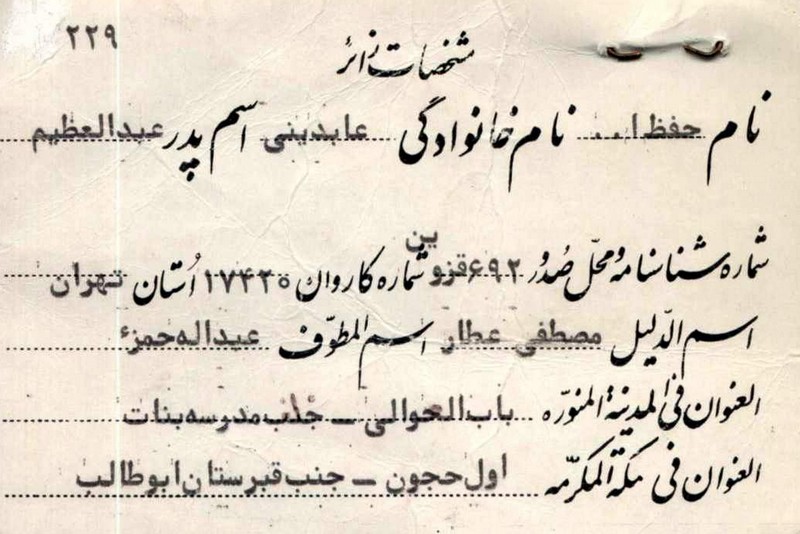 ۲۲۹
مشخصات زائر
نام حفظ ا... نام خانوادگی عابدینی اسم پدر عبدالعظیم
شماره شناسنامه و محل صدور ۶۹۲ قزوین شماره کاروان ۱۷۴۳۰ اُستان تهران
اسم الدّلیل مصطفی عطار اسم المطوّف عبداله حمزء
العنوان فی المدینة المنوّره باب العوالی ــ جنب مدرسه بنات
العنوان فی مکة المکرّمه اول حجون ــ جنب قبرستان ابوطالب